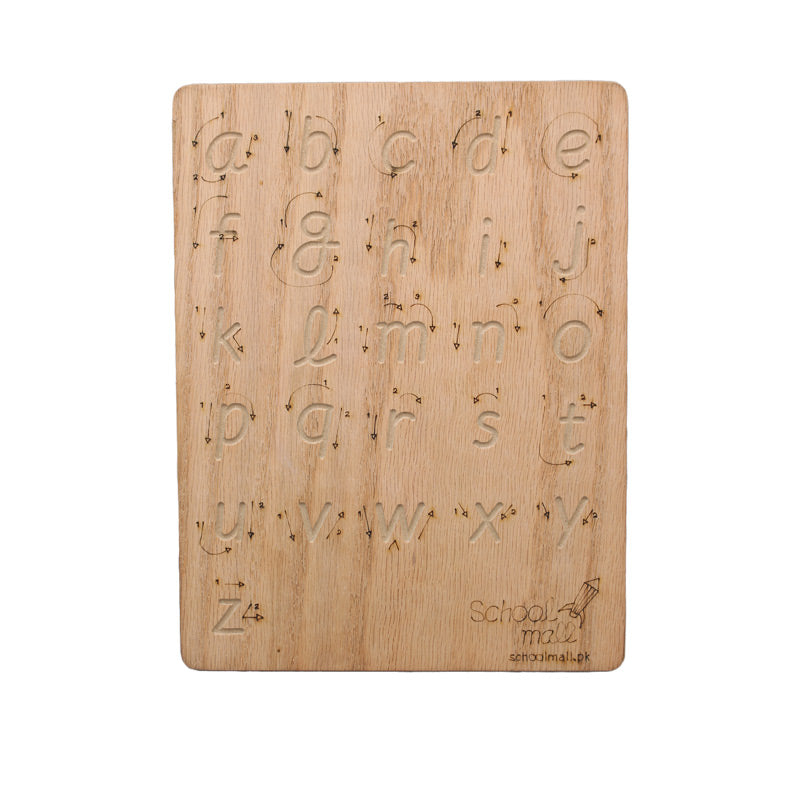 a b c d e
f g h i j
k l m n o
p q r s t
u v w x y
z
School
mall
schoolmall.pk